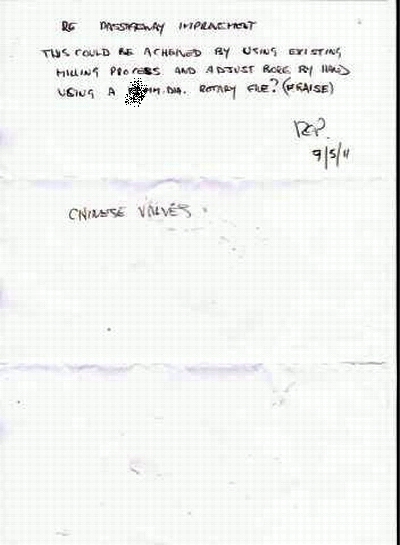 RE PASSAGEWAY IMPROVEMENT
THIS COULD BE ACHEIVED BY USING EXISTING
MILLING PROCESS AND ADJUST BORE BY HAND
USING A MM.DIA. ROTARY FILE? (FRAISE)
9/5/11
CHINESE VALVES